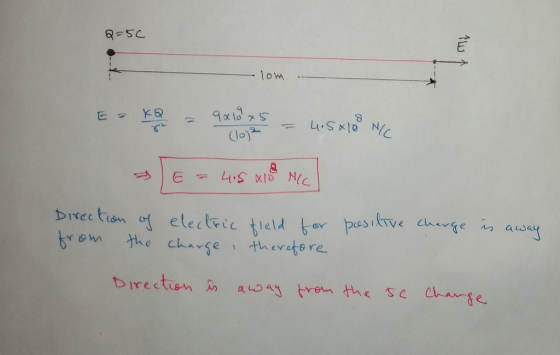 Q=5C
E⃗
10m
E = KQ/r² = 9x10⁹x5/(10)² = 4.5x10⁸ N/C
⇒ E = 4.5 x10⁸ N/C
Direction of electric field for positive charge is away
from the charge, therefore
Direction is away from the 5C charge